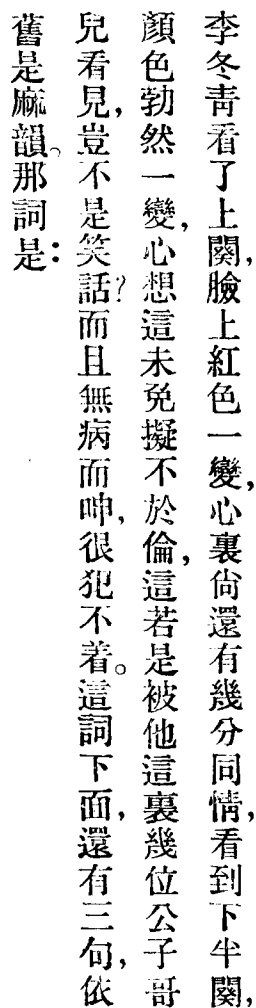 李冬靑看了上闋，臉上紅色一變，心裏尙還有幾分同情，看到下半闋，
顏色勃然一變，心想這未免擬不於倫，這若是被他這裏幾位公子哥
兒看見，豈不是笑話？而且無病而呻，很犯不着。這詞下面，還有三句，依
舊是麻韻。那詞是：